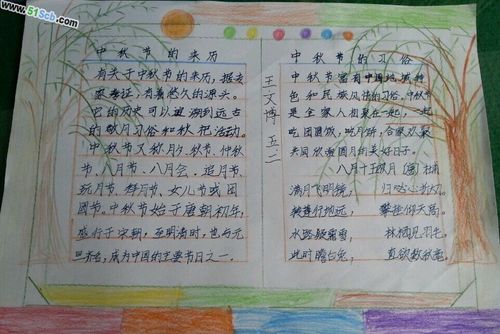 www.51Scb.com
中秋节的来历
有关于中秋节的来历,据专
家考证,有着悠久的源头。
它的历史可以追溯到远古
的敬月习俗和秋祀活动。
中秋节又称月夕、秋节、仲秋
节、八月节、八月会、追月节、
玩月节、拜月节、女儿节或团
圆节。中秋节始于唐朝初年,
盛行于宋朝,至明清时,也与元
旦齐名,成为中国的主要节日之一。
王文博 五二
中秋节的习俗
中秋节富有中国地域特
色和民族风情的习俗。中秋节
是全家人相聚在一起,一起
吃团圆饭,吃月饼,合家欢聚
共同欣赏圆月的美好日子。
八月十五夜月(唐)杜甫
满月飞明镜, 归心折大刀。
转蓬行地远, 攀桂仰天高。
水路疑霜雪, 林栖见羽毛。
此时瞻白兔, 直欲数秋毫。